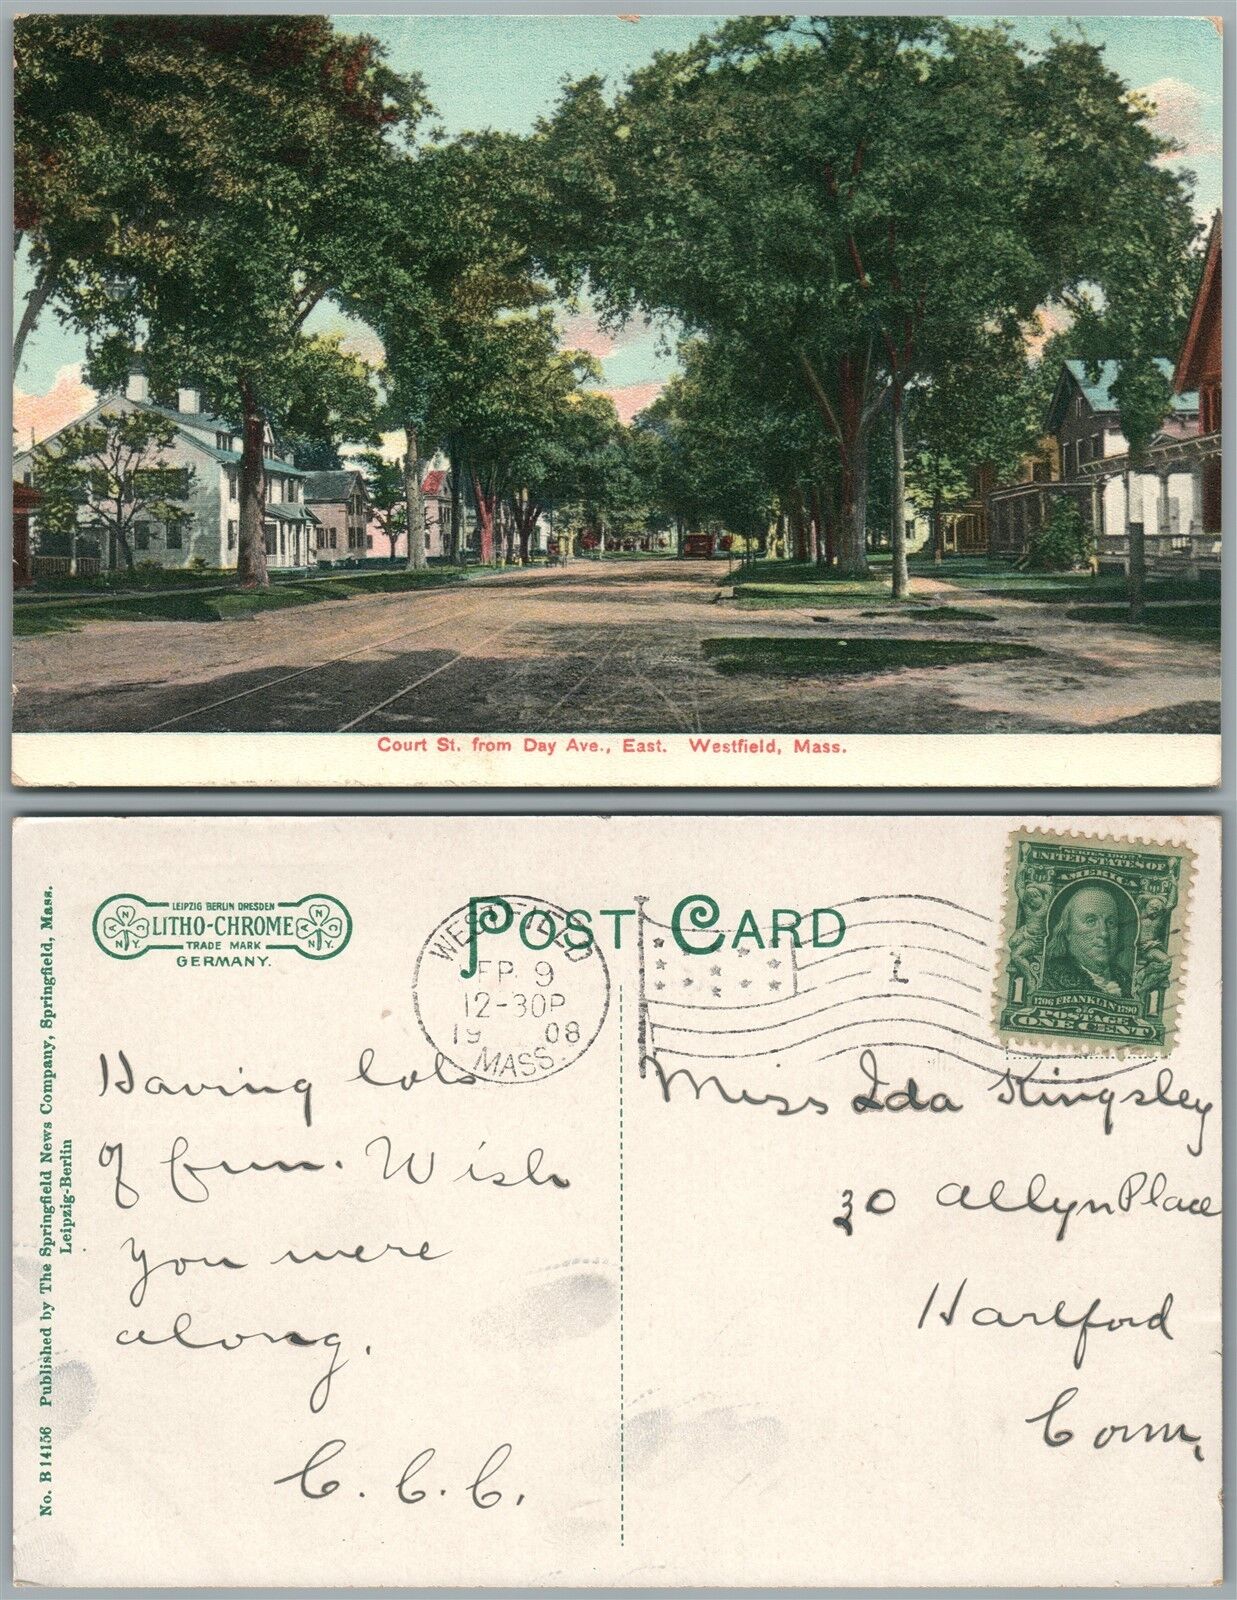 Court St. from Day Ave., East. Westfield, Mass.
LEIPZIG BERLIN DRESDEN
LITHO-CHROME
TRADE MARK
GERMANY.
POST CARD
WESTFIELD
9
12-30P
19 08
MASS.
1
SERIES 1902
UNITED STATES OF
AMERICA
1706 FRANKLIN 1790
POSTAGE
1 ONE CENT 1
No. B 14156 Published by The Springfield News Company, Springfield, Mass.
Leipzig-Berlin
Having lots
of fun. Wish
you were
along.
C. C. C.
Miss Ida Kingsley
30 Allyn Place
Hartford
Conn.